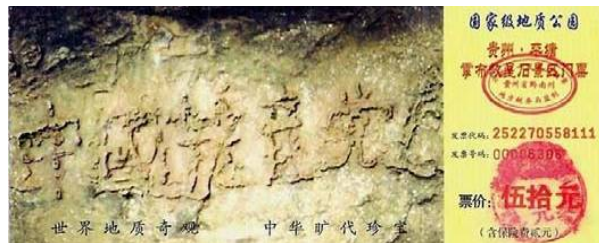 中國共產党
世界地质奇观 中华旷代珍宝
国家级地质公园
贵州·平塘
掌布救星石景区门票
贵州省黔南州
发票代码: 252270558111
发票号码: 00006306
票价: 伍拾元
(含保险费贰元)